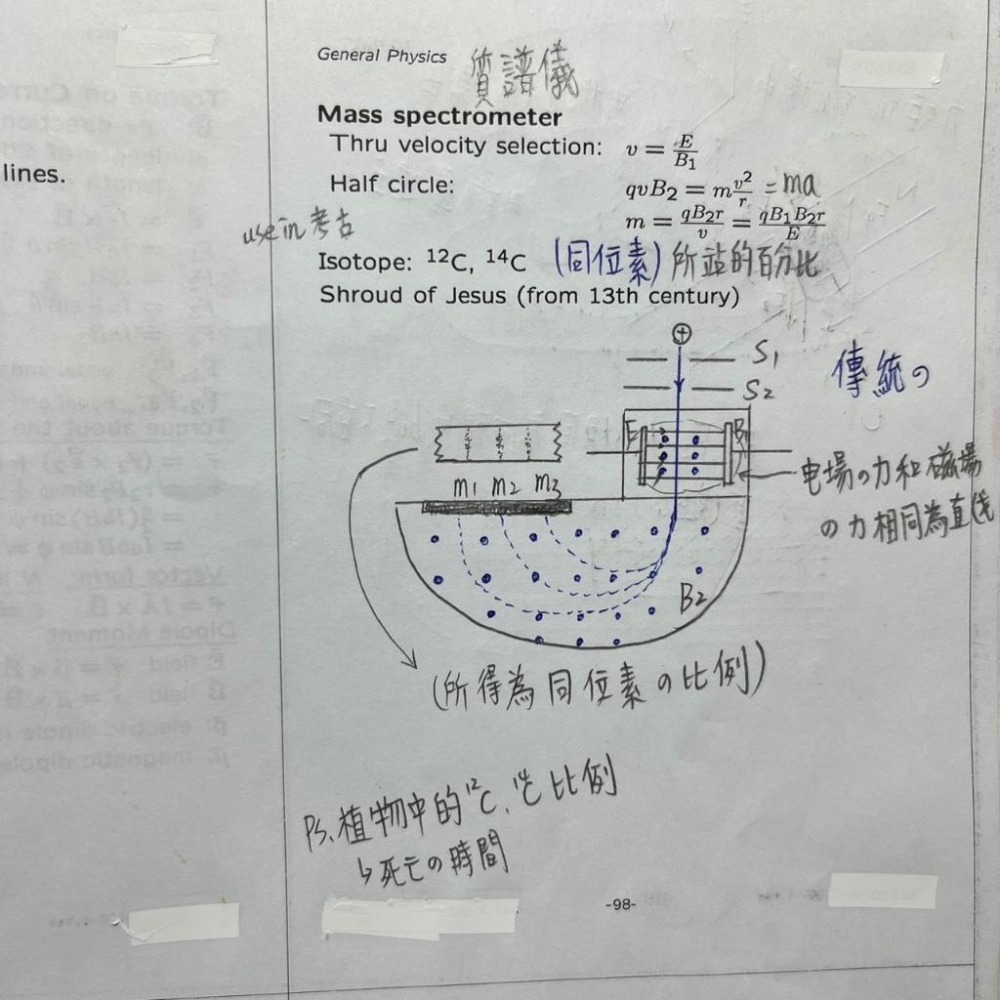 lines.
General Physics 質譜儀
Mass spectrometer
Thru velocity selection: v = E/B₁
Half circle: qvB₂ = m v²/r = ma
m = qB₂r/v = qB₁B₂r/E
use in 考古
Isotope: ¹²C, ¹⁴C (同位素) 所站的百分比
Shroud of Jesus (from 13th century)
+
S₁
S₂
傳統の
E
m₁ m₂ m₃
电場の力和磁場
の力相同為直线
B₂
(所得為同位素の比例)
Ps. 植物中的¹²C, ¹⁴C 比例
↳ 死亡の時間
-98-